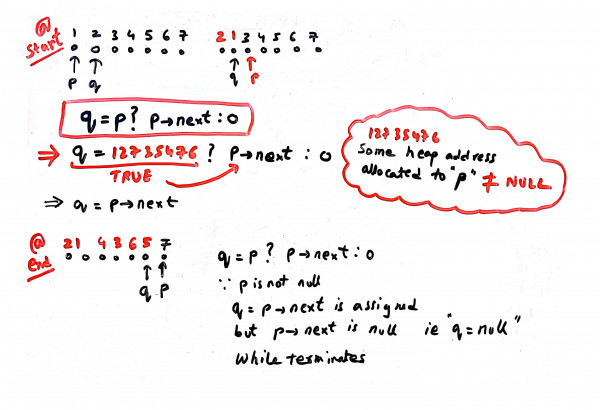 @ start
1 2 3 4 5 6 7
2 1 3 4 5 6 7
p q
q p
q = p ? p→next : 0
⇒ q = 12735476 ? p→next : 0
TRUE
⇒ q = p→next
12735476
Some heap address
allocated to "p" ≠ NULL
@ end
2 1 4 3 6 5 7
q p
q = p ? p→next : 0
∵ p is not null
q = p→next is assigned
but p→next is null ie "q=null"
While terminates